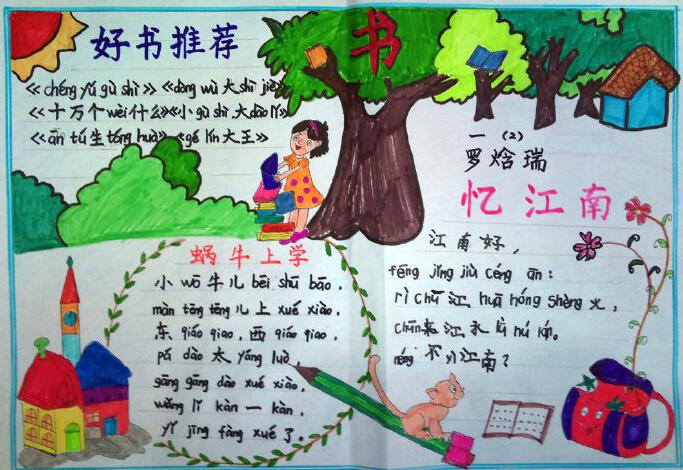 好书推荐
《chéng yǔ gù shì》《dòng wù 大 shì jiè》
《十万个 wèi 什么》《小 gù shì 大 dào lǐ》
《ān tú 生 tóng huà》《gé lín 大王》
书
一 (2)
罗焓瑞
忆江南
江南好，
fēng jǐng jiù céng ān：
rì chū 江 huā hóng shèng 火，
chūn来江水 lǜ rú lán。
néng 不 yì 江南？
蜗牛上学
小 wō 牛儿 bēi shū bāo，
màn tēng tēng 儿上 xué xiào，
东 qiáo qiao，西 qiáo qiao，
pá dào 太 yáng luò，
gāng gāng dào xué xiào，
wǎng lǐ kàn 一 kàn，
yǐ jīng fàng xué 了。